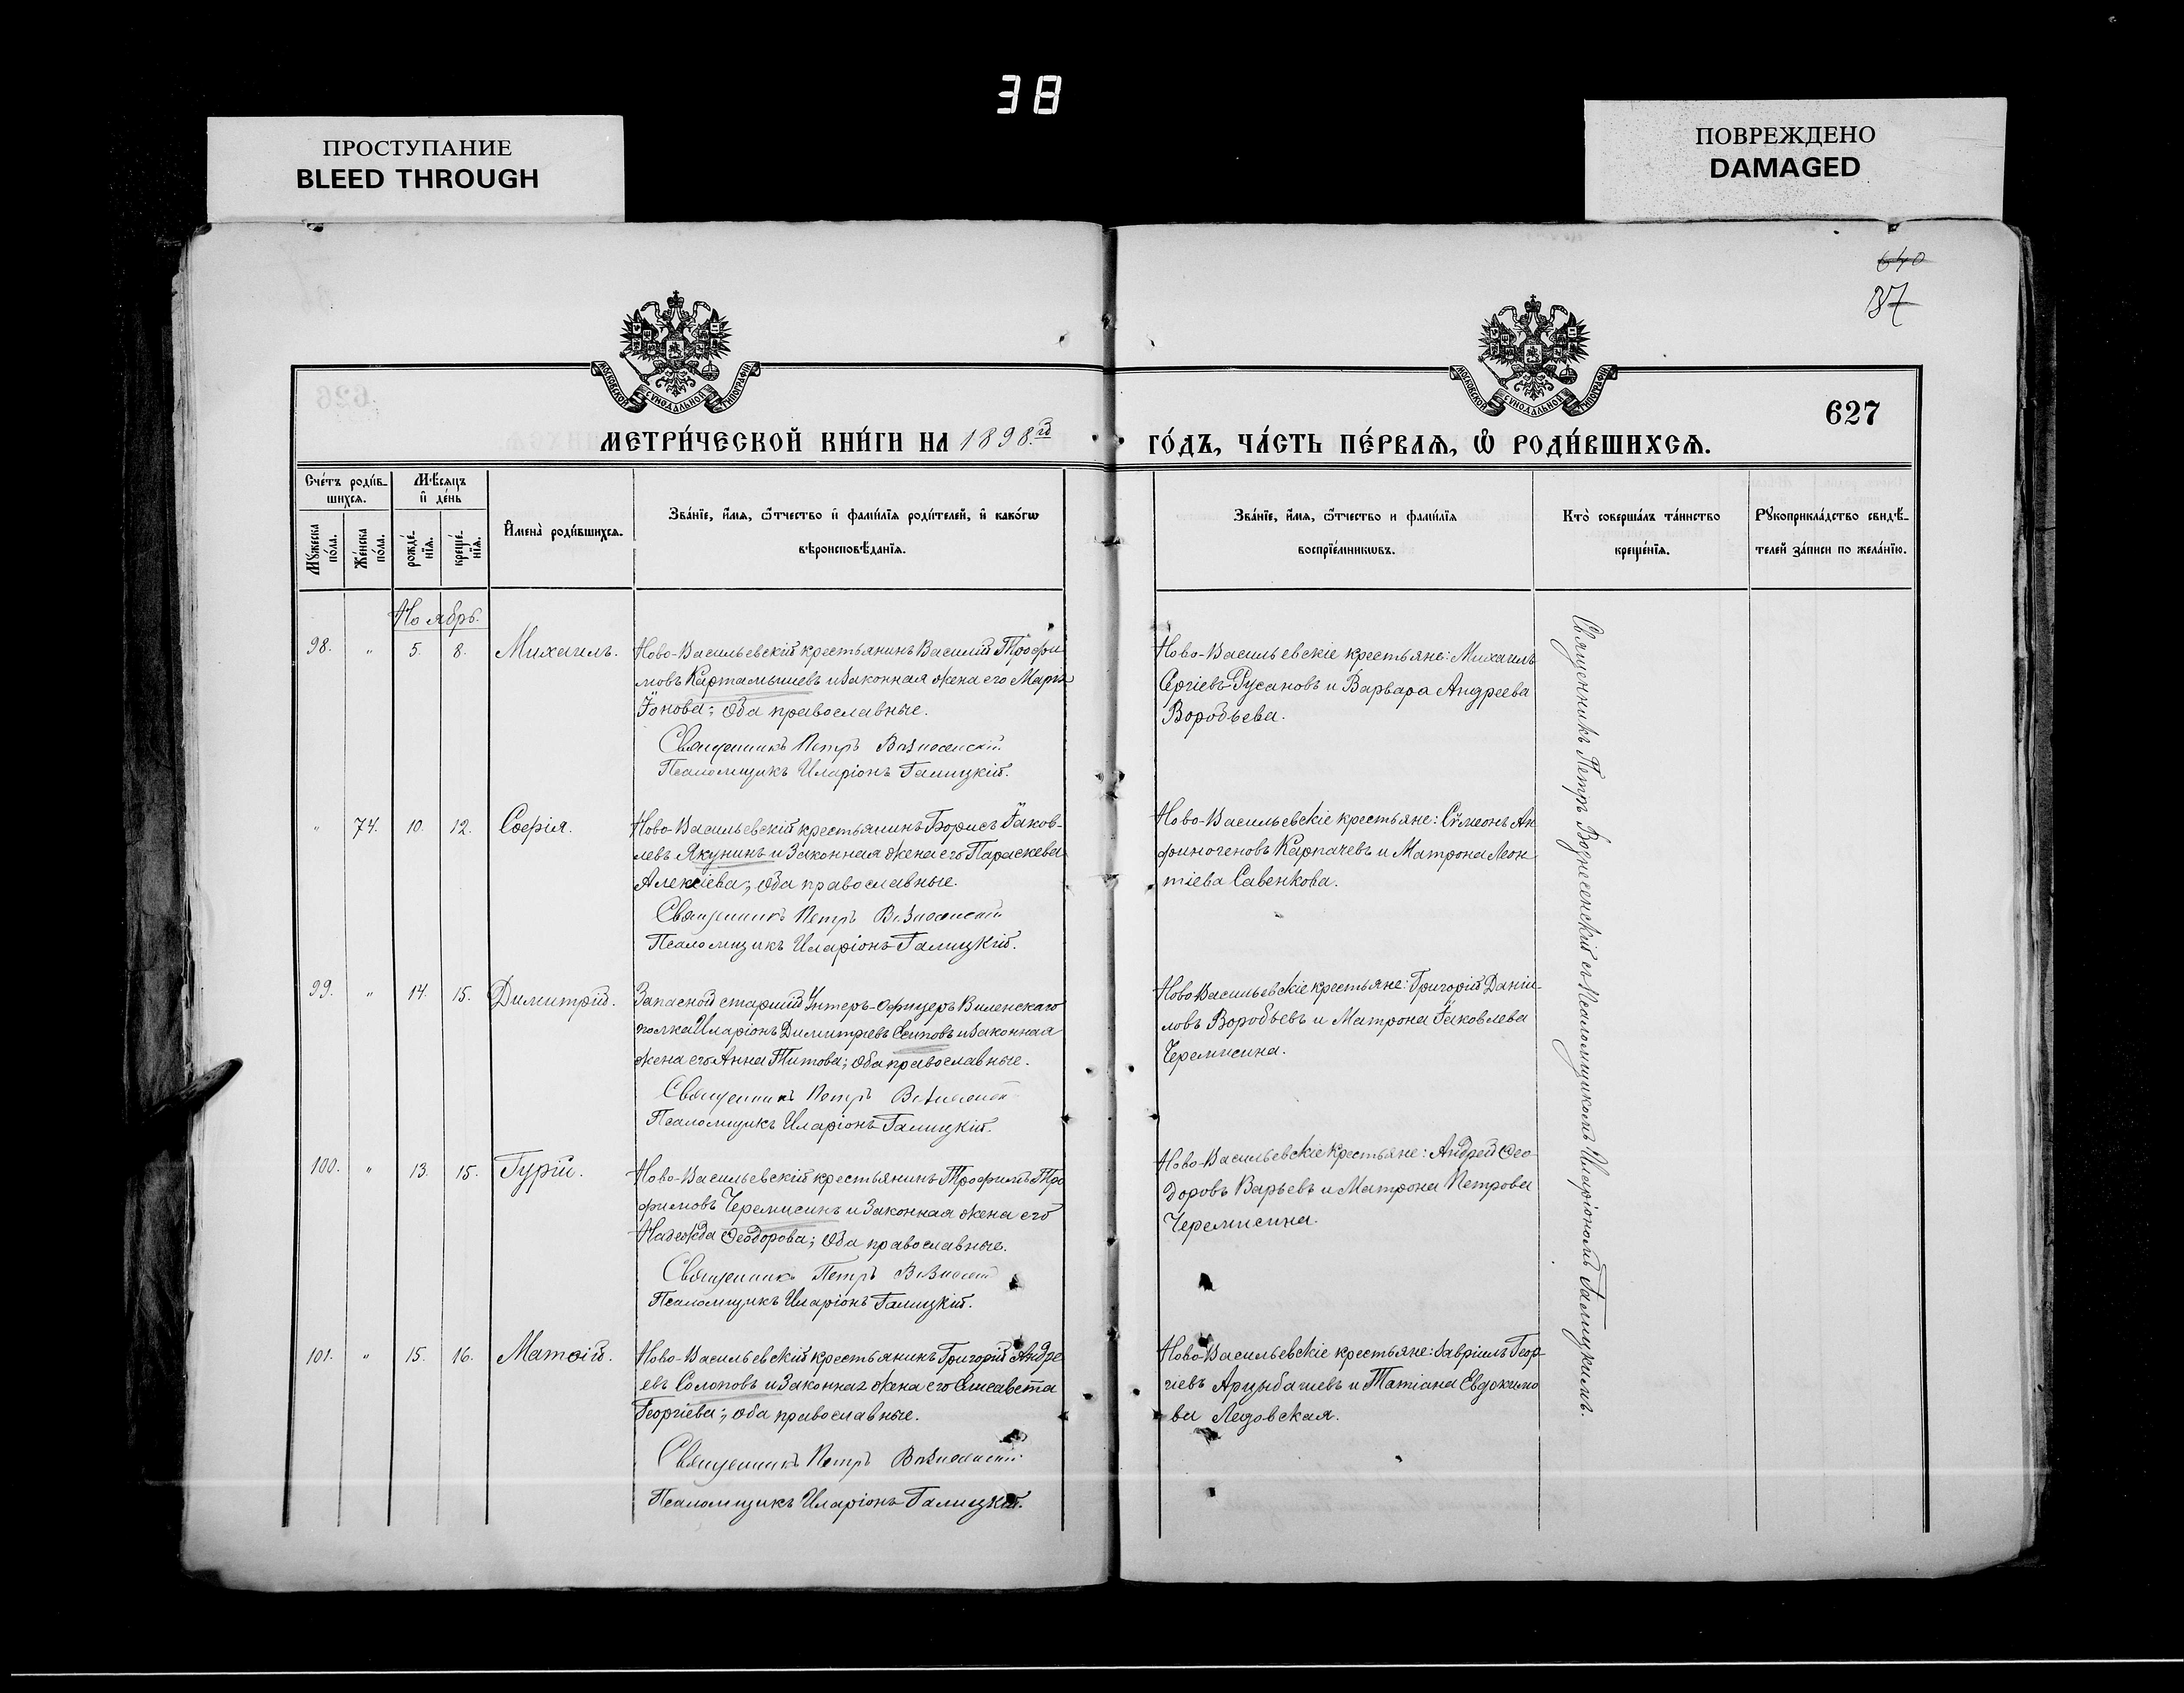 38
ПРОСТУПАНИЕ
BLEED THROUGH
ПОВРЕЖДЕНО
DAMAGED
640
37
МОСКОВСКОЙ СУНОДАЛЬНОЙ ТИПОГРАФІИ
МОСКОВСКОЙ СУНОДАЛЬНОЙ ТИПОГРАФІИ
627
МЕТРИ́ЧЕСКОЙ КНИ́ГИ НА 1898.й
ГО́ДЪ, ЧА́СТЬ ПЕ́РВАѦ, Ѿ РОДИ́ВШИХСѦ.
Сче́тъ роди́в-
шихсѧ.
Мꙋжеска по́ла.
Же́нска по́ла.
Мѣ́сѧцъ
и҆ де́нь
рожде́-
нїѧ.
креще́-
нїѧ.
И҆мена̀ роди́вшихсѧ.
Зва́нїе, и҆́мѧ, ѻ҆́тчество и҆ фами́лїѧ роди́телей, и҆ како́гѡ
вѣроисповѣ́данїѧ.
Зва́нїе, и҆́мѧ, ѻ҆́тчество и фами́лїѧ
воспрїе́мникѡвъ.
Кто̀ соверша́лъ та́инство
креще́нїѧ.
Рꙋкоприкла́дство свидѣ́-
телей за́писи по жела́нїю.
Ноябрь.
98. " 5. 8. Михаилъ.
Ново-Васильевскій крестьянинъ Василій Трофи-
мовъ Картамышевъ и законная жена его Марія
Іонова; оба православные.
Священникъ Петръ Вознесенскій
Псаломщикъ Иларіонъ Галицкій.
Ново-Васильевскіе крестьяне: Михаилъ
Сергіевъ Русановъ и Варвара Андреева
Воробьева.
" 74. 10. 12. Софія.
Ново-Васильевскій крестьянинъ Борисъ Іаков-
левъ Якунинъ и законная жена его Параскева
Алексіева; оба православные.
Священникъ Петръ Вознесенскій
Псаломщикъ Иларіонъ Галицкій.
Ново-Васильевскіе крестьяне: Сѵмеонъ Ан
финогеновъ Карпачевъ и Матрона Леон
тіева Савенкова.
99. " 14. 15. Димитрій.
Запасной старшій Унтеръ-Офицеръ Виленскаго
полка Иларіонъ Димитріевъ Осиповъ и законная
жена его Анна Титова; оба православные.
Священникъ Петръ Вознесенскій
Псаломщикъ Иларіонъ Галицкій.
Ново Васильевскіе крестьяне: Григорій Даніи-
ловъ Воробьевъ и Матрона Іаковлева
Черемисина.
100. " 13. 15. Гурій.
Ново-Васильевскій крестьянинъ Трофимъ Тро
фимовъ Черемисинъ и законная жена его
Надежда Ѳеодорова; оба православные.
Священникъ Петръ Вознесенскій
Псаломщикъ Иларіонъ Галицкій.
Ново-Васильевскіе крестьяне: Андрей Ѳео-
доровъ Варьевъ и Матрона Петрова
Черемисина.
101. " 15. 16. Матѳій.
Ново-Васильевскій крестьянинъ Григорій Андре
евъ Солоповъ и законная жена его Елисавета
Георгіева; оба православные.
Священникъ Петръ Вознесенскій
Псаломщикъ Иларіонъ Галицкій.
Ново-Васильевскіе крестьяне: Гавріилъ Геор-
гіевъ Арцыбашевъ и Татіана Евдокимо
ва Ледовская.
Священникъ Петръ Вознесенскій съ Псаломщикомъ Иларіономъ Галицкимъ.